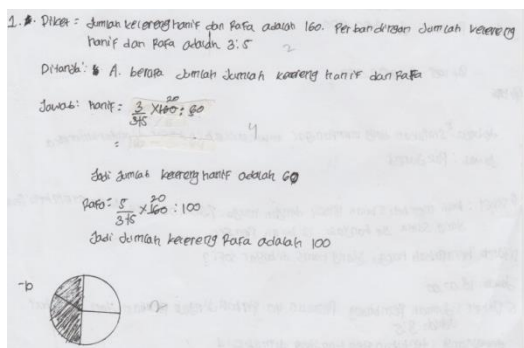 1. Diket = Jumlah kelereng hanif dan Rafa adalah 160. Perbandingan Jumlah kelereng
hanif dan Rafa adalah 3:5
2
Ditanya: A. berapa Jumlah Jumlah kelereng hanif dan Rafa
Jawab: hanif = 3/3+5 × 160 20 : 60
=
4
Jadi Jumlah kelereng hanif adalah 60
Rafa = 5/3+5 × 160 20 : 100
Jadi Jumlah kelereng Rafa adalah 100
-b